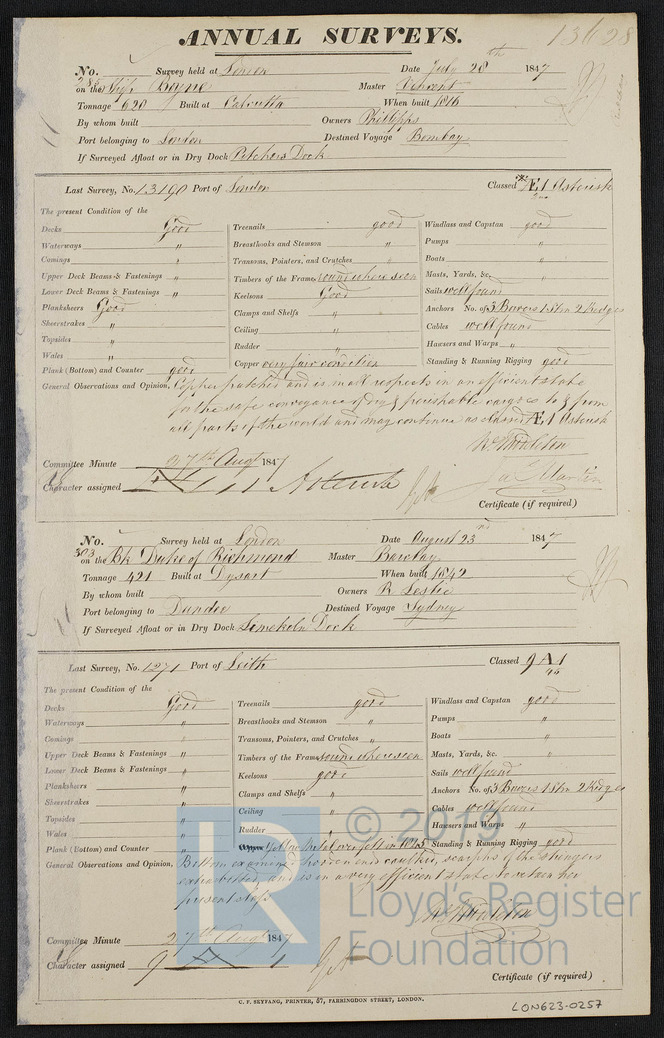 ANNUAL SURVEYS.
13628
No. 285 Survey held at London Date July 28th 1847
on the Ship Boyne Master
Tonnage 620 Built at Calcutta When built 1816
By whom built Owners Phillipps
Port belonging to London Destined Voyage Bombay
If Surveyed Afloat or in Dry Dock Pitchers Dock
Last Survey, No. 13190 Port of London Classed Æ1 Asterisk
The present Condition of the
Decks Good
Waterways "
Comings "
Upper Deck Beams & Fastenings "
Lower Deck Beams & Fastenings "
Planksheers Good
Sheerstrakes "
Topsides "
Wales "
Plank (Bottom) and Counter good
Treenails good
Breasthooks and Stemson "
Transoms, Pointers, and Crutches "
Timbers of the Frame sound where seen
Keelsons Good
Clamps and Shelfs "
Ceiling "
Rudder "
Copper very fair condition
Windlass and Capstan good
Pumps "
Boats "
Masts, Yards, &c. "
Sails well found
Anchors No. of 3 Bowers 1 Strm 2 Kedges
Cables well found
Hawsers and Warps "
Standing & Running Rigging good
General Observations and Opinion, Copper patched and is in all respects in an efficient state
for the safe conveyance of dry & perishable cargoes to & from
all parts of the world and may continue as classed Æ1 Asterisk
Wm Middleton
Ja Martin
Committee Minute 27th Augt 1847
Character assigned Æ 1 Asterisk
Certificate (if required)
No. 303 Survey held at London Date August 23rd 1847
on the Bk Duke of Richmond Master Barclay
Tonnage 421 Built at Dysart When built 1842
By whom built Owners R Leslie
Port belonging to Dundee Destined Voyage Sydney
If Surveyed Afloat or in Dry Dock Limekiln Dock
Last Survey, No. 1271 Port of Leith Classed 9 A 1
The present Condition of the
Decks Good
Waterways "
Comings "
Upper Deck Beams & Fastenings "
Lower Deck Beams & Fastenings "
Planksheers "
Sheerstrakes "
Topsides "
Wales "
Plank (Bottom) and Counter "
Treenails good
Breasthooks and Stemson "
Transoms, Pointers, and Crutches "
Timbers of the Frame sound where seen
Keelsons good
Clamps and Shelfs "
Ceiling "
Rudder "
Copper Yellow Metal over felt in 1845
Windlass and Capstan good
Pumps "
Boats "
Masts, Yards, &c. "
Sails well found
Anchors No. of 3 Bowers 1 Strm 2 Kedges
Cables well found
Hawsers and Warps "
Standing & Running Rigging good
General Observations and Opinion, Bottom examined and caulked, scarphs of the stringers
and is in a very efficient state to retain her
present class
Wm Middleton
Committee Minute 27th Augt 1847
Character assigned 9 A 1
Certificate (if required)
C. F. SEYFANG, PRINTER, 57, FARRINGDON STREET, LONDON.
LON623-0257
LR © 2019
Lloyd's Register
Foundation